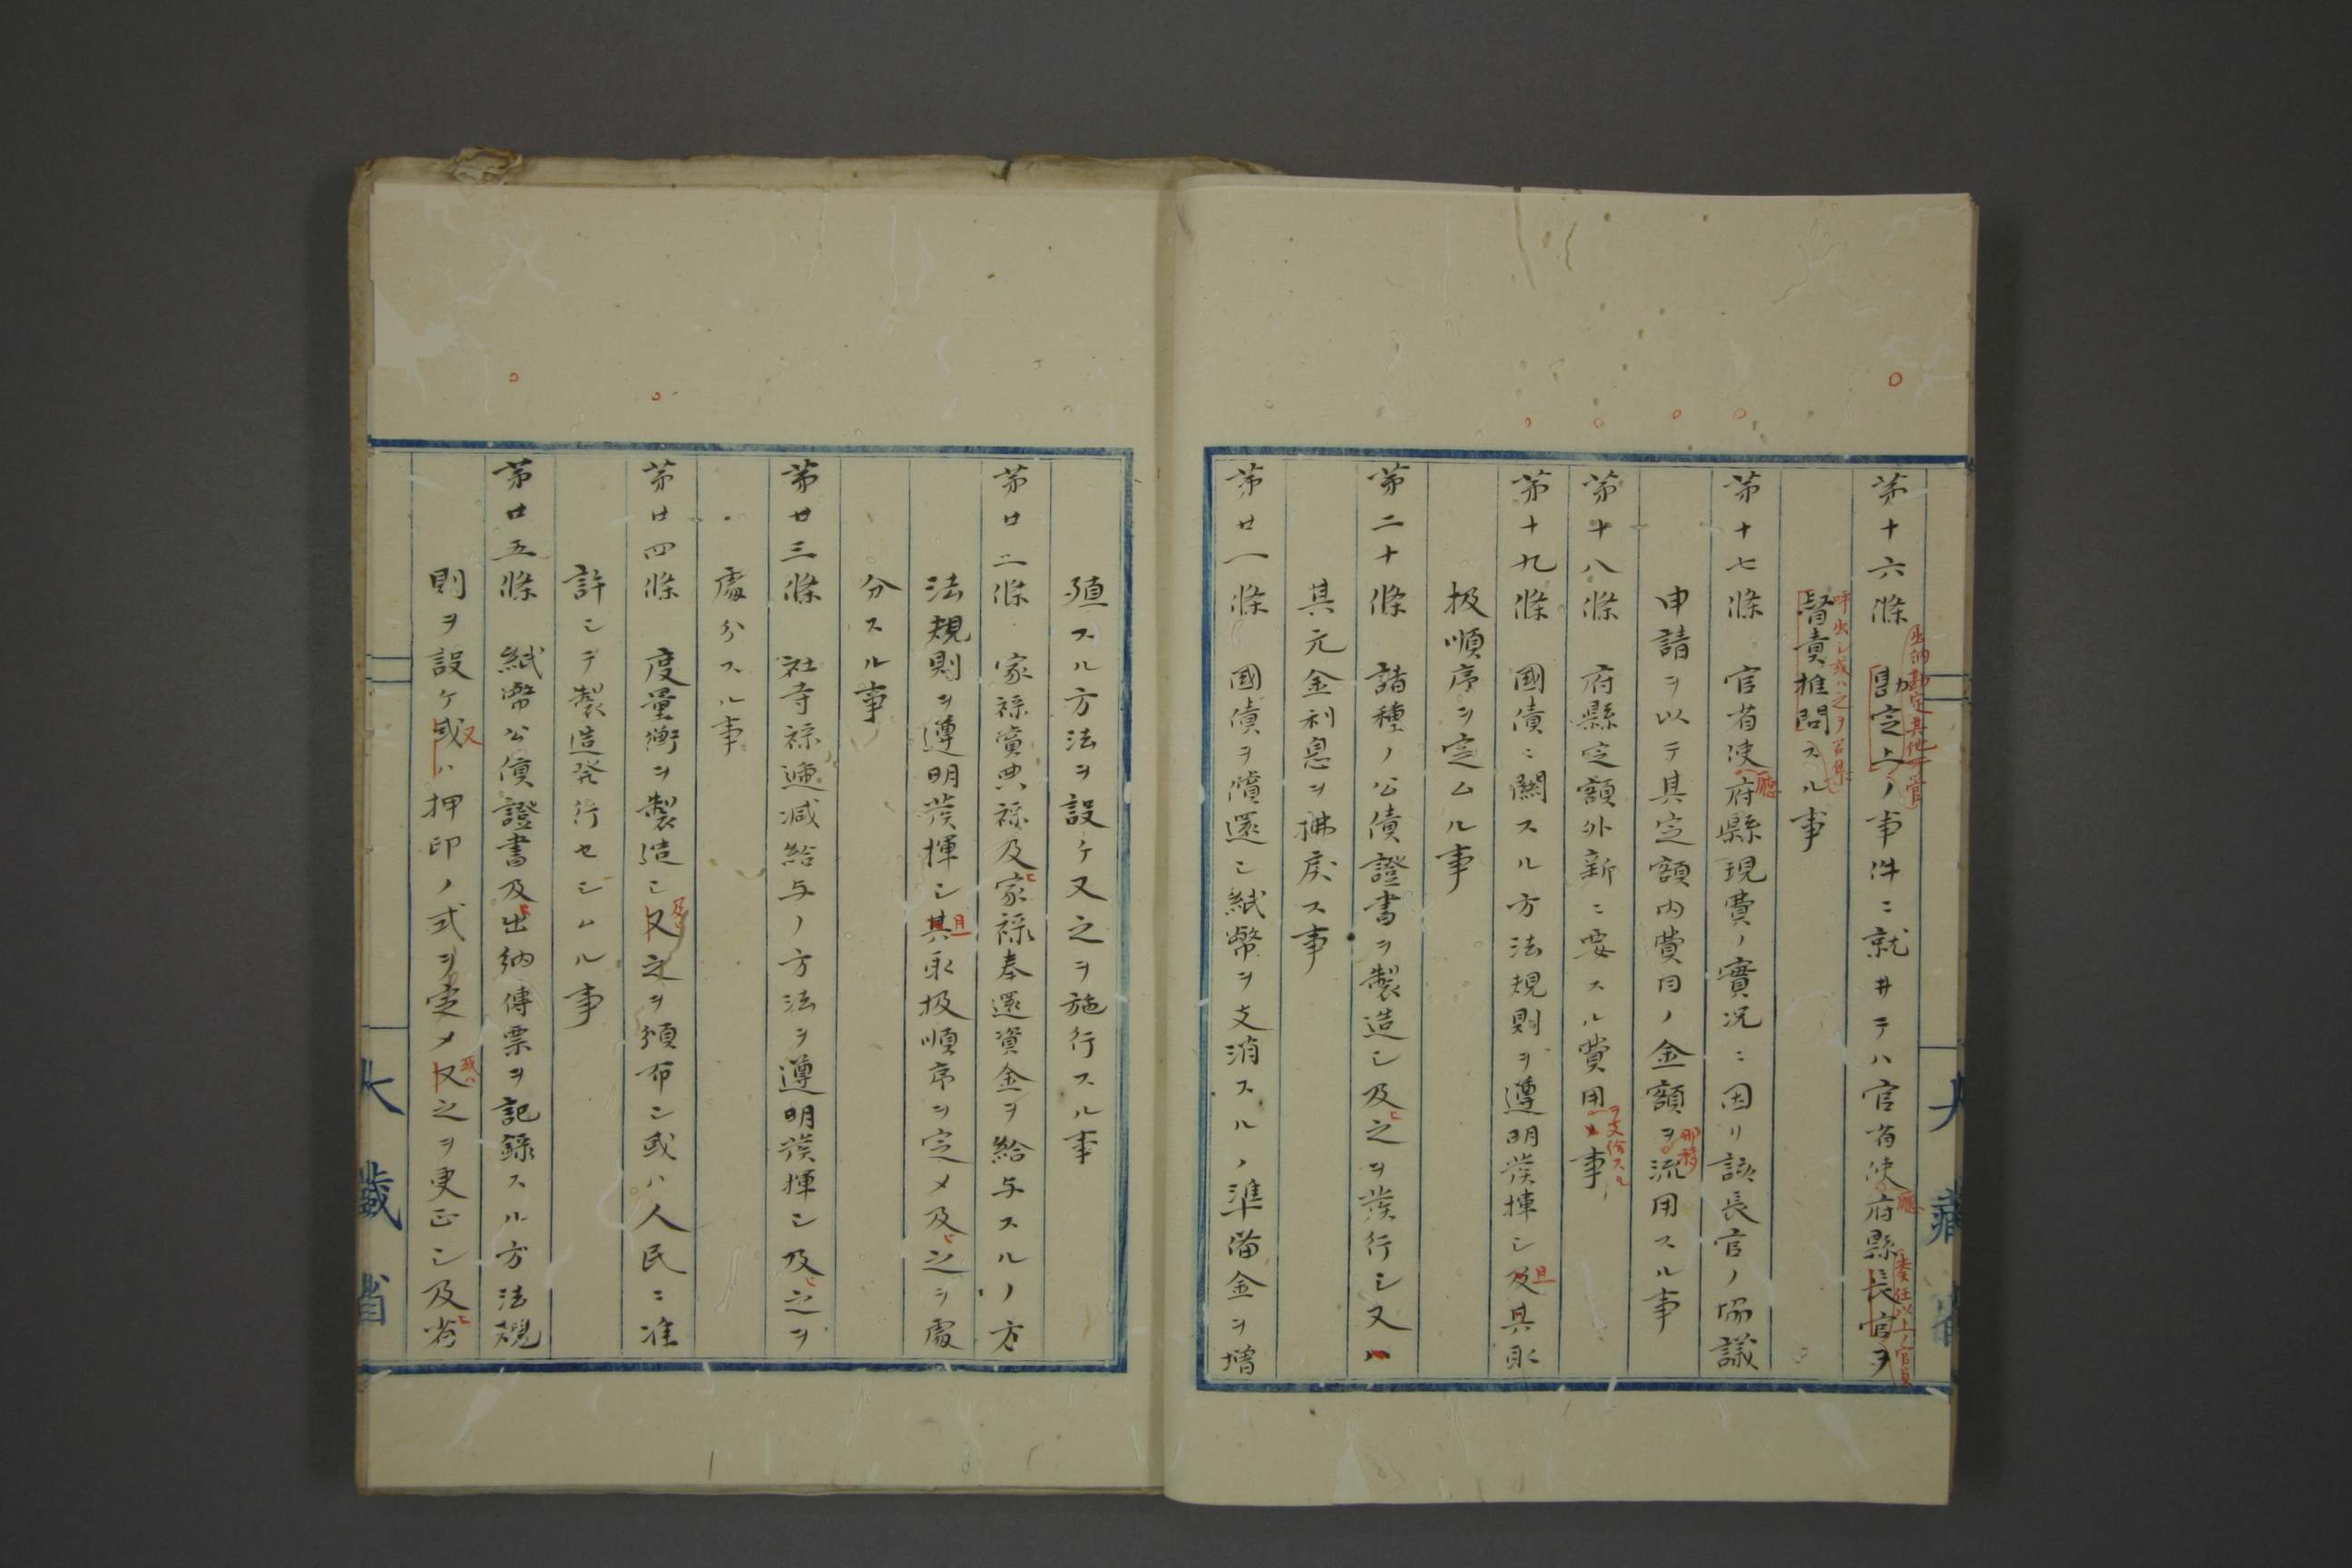 大藏省
第十六條 勘定上ノ事件ニ就キテハ官省使府縣長官ヲ
出納勘定其他所管
廳
委任以上ノ官員
督責推問スル事
呼出シ或ハ之ヲ召集
第十七條 官省使府縣現費ノ實況ニ因リ該長官ノ協議
廳
申請ヲ以テ其定額内費目ノ金額ヲ流用スル事
那移
第十八條 府縣定額外新ニ要スル費用ノ事
ヲ支給スル
第十九條 國債ニ關スル方法規則ヲ遵明發揮シ及其取
且
扱順序ヲ定ムル事
第二十條 諸種ノ公債證書ヲ製造シ及ヒ之ヲ發行シ又ハ
其元金利息ヲ拂戻ス事
第廿一條 國債ヲ償還シ紙幣ヲ支消スルノ準備金ヲ增
殖スル方法ヲ設ケ又之ヲ施行スル事
第廿二條 家祿賞典祿及ヒ家祿奉還資金ヲ給与スルノ方
法規則ヲ遵明發揮シ其取扱順序ヲ定メ及ヒ之ヲ處
且
分スル事
第廿三條 社寺祿逓減給与ノ方法ヲ遵明發揮シ及ヒ之ヲ
處分スル事
第廿四條 度量衡ヲ製造シ又之ヲ頒布シ或ハ人民ニ准
及ヒ
許シテ製造発行セシムル事
第廿五條 紙幣公債證書及ヒ出納傳票ヲ記錄スル方法規
則ヲ設ケ或ハ押印ノ式ヲ定メ又之ヲ更正シ及ヒ省
又
或ハ
大藏省